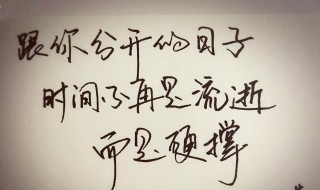 跟你分开的日子
时间不再是流逝
而是硬撑